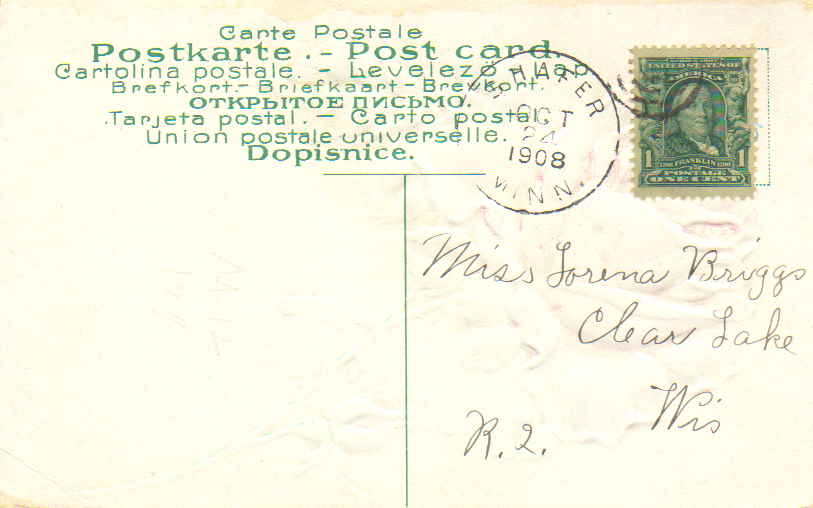 Carte Postale
Postkarte. - Post card.
Cartolina postale. - Levelező Lap
Brefkort.- Briefkaart- Brevkort.
ОТКРЫТОЕ ПИСЬМО.
Tarjeta postal. - Carto postal
Union postale universelle.
Dopisnice.
SHAFER
OCT
24
1908
MINN.
UNITED STATES OF
AMERICA
1 FRANKLIN 1
POSTAGE
ONE CENT
Miss Lorena Briggs
Clear Lake
Wis
R. 2.